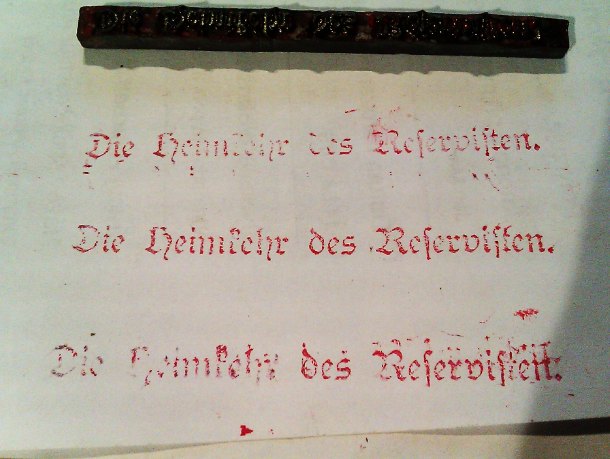 Die Heimkehr des Reservisten.
Die Heimkehr des Reservisten.
Die Heimkehr des Reservisten.